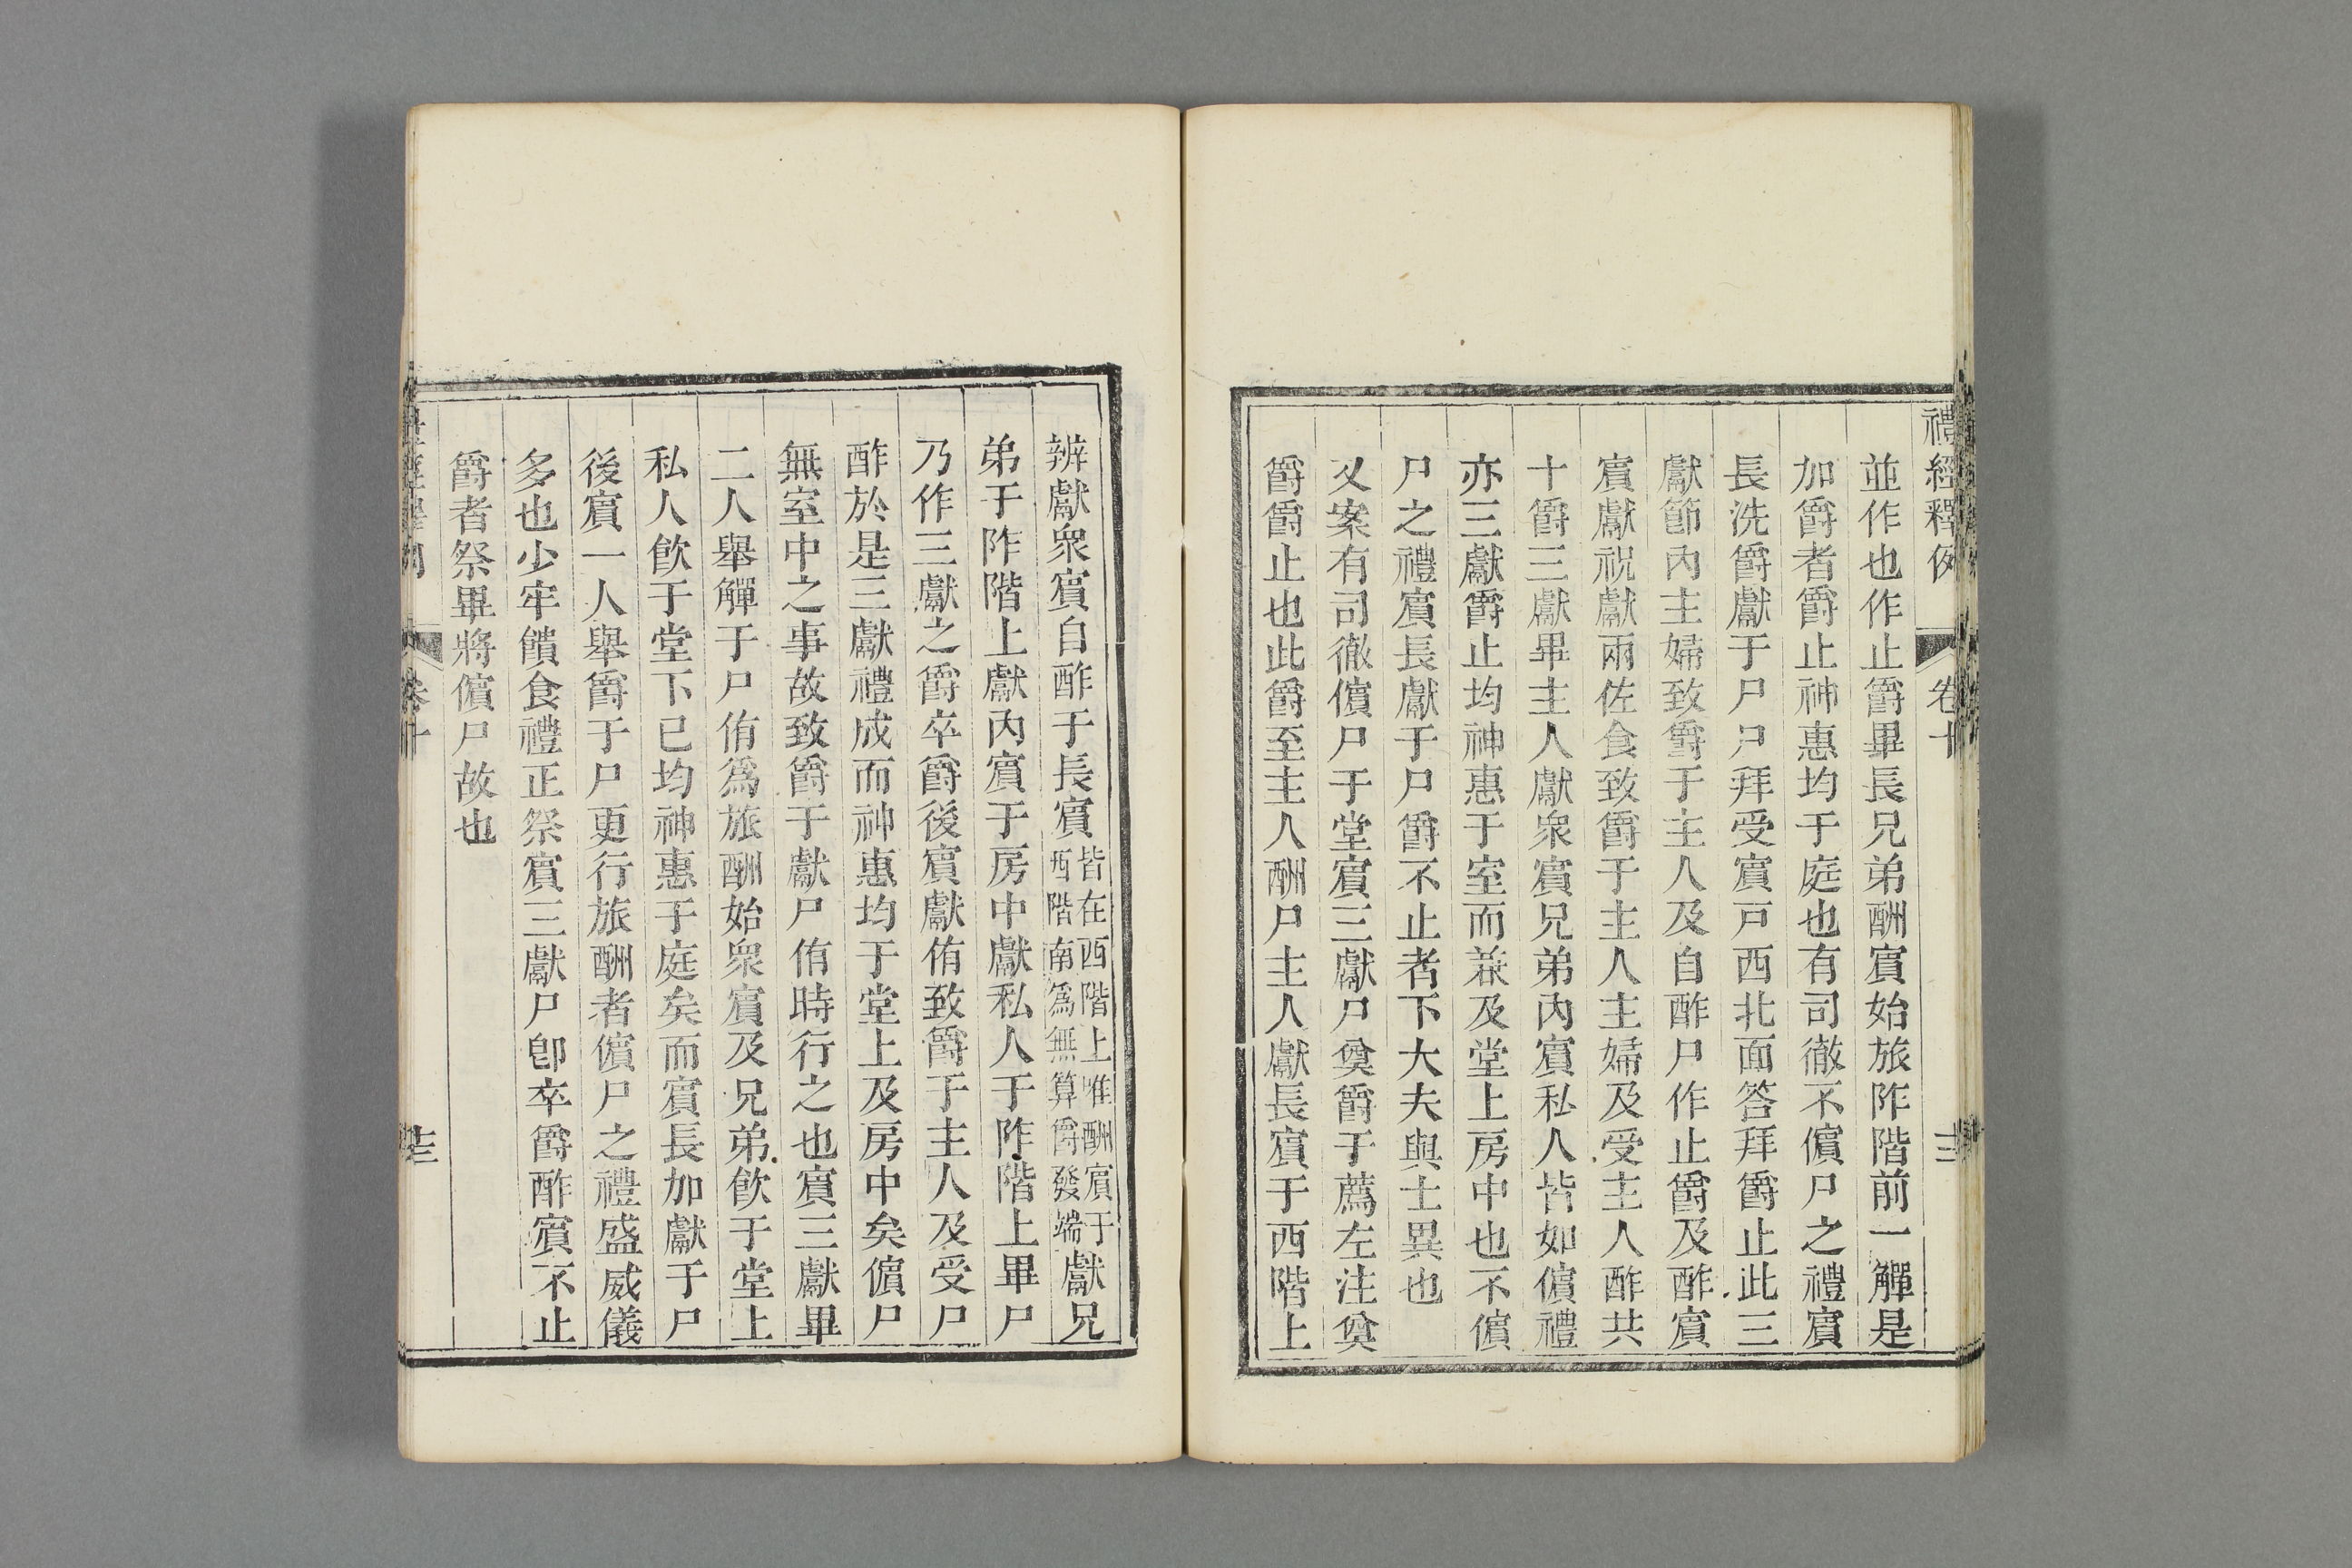 禮經釋例 卷十
並作也作止爵畢長兄弟酬賓始旅阼階前一觶是
加爵者爵止神惠均于庭也有司徹不儐尸之禮賓
長洗爵獻于尸尸拜受賓戸西北面答拜爵止此三
獻節內主婦致爵于主人及自酢尸作止爵及酢賓
賓獻祝獻兩佐食致爵于主人主婦及受主人酢共
十爵三獻畢主人獻衆賓兄弟內賓私人皆如儐禮
亦三獻爵止均神惠于室而兼及堂上房中也不儐
尸之禮賓長獻于尸爵不止者下大夫與士異也
又案有司徹儐尸于堂賓三獻尸奠爵于薦左注奠
爵爵止也此爵至主人酬尸主人獻長賓于西階上
辨獻衆賓自酢于長賓皆在西階上唯酬賓于西階南爲無算爵發端獻兄
弟于阼階上獻內賓于房中獻私人于阼階上畢尸
乃作三獻之爵卒爵後賓獻侑致爵于主人及受尸
酢於是三獻禮成而神惠均于堂上及房中矣儐尸
無室中之事故致爵于獻尸侑時行之也賓三獻畢
二人舉觶于尸侑爲旅酬始衆賓及兄弟飮于堂上
私人飮于堂下已均神惠于庭矣而賓長加獻于尸
後賓一人舉爵于尸更行旅酬者儐尸之禮盛威儀
多也少牢饋食禮正祭賓三獻尸卽卒爵酢賓不止
爵者祭畢將儐尸故也